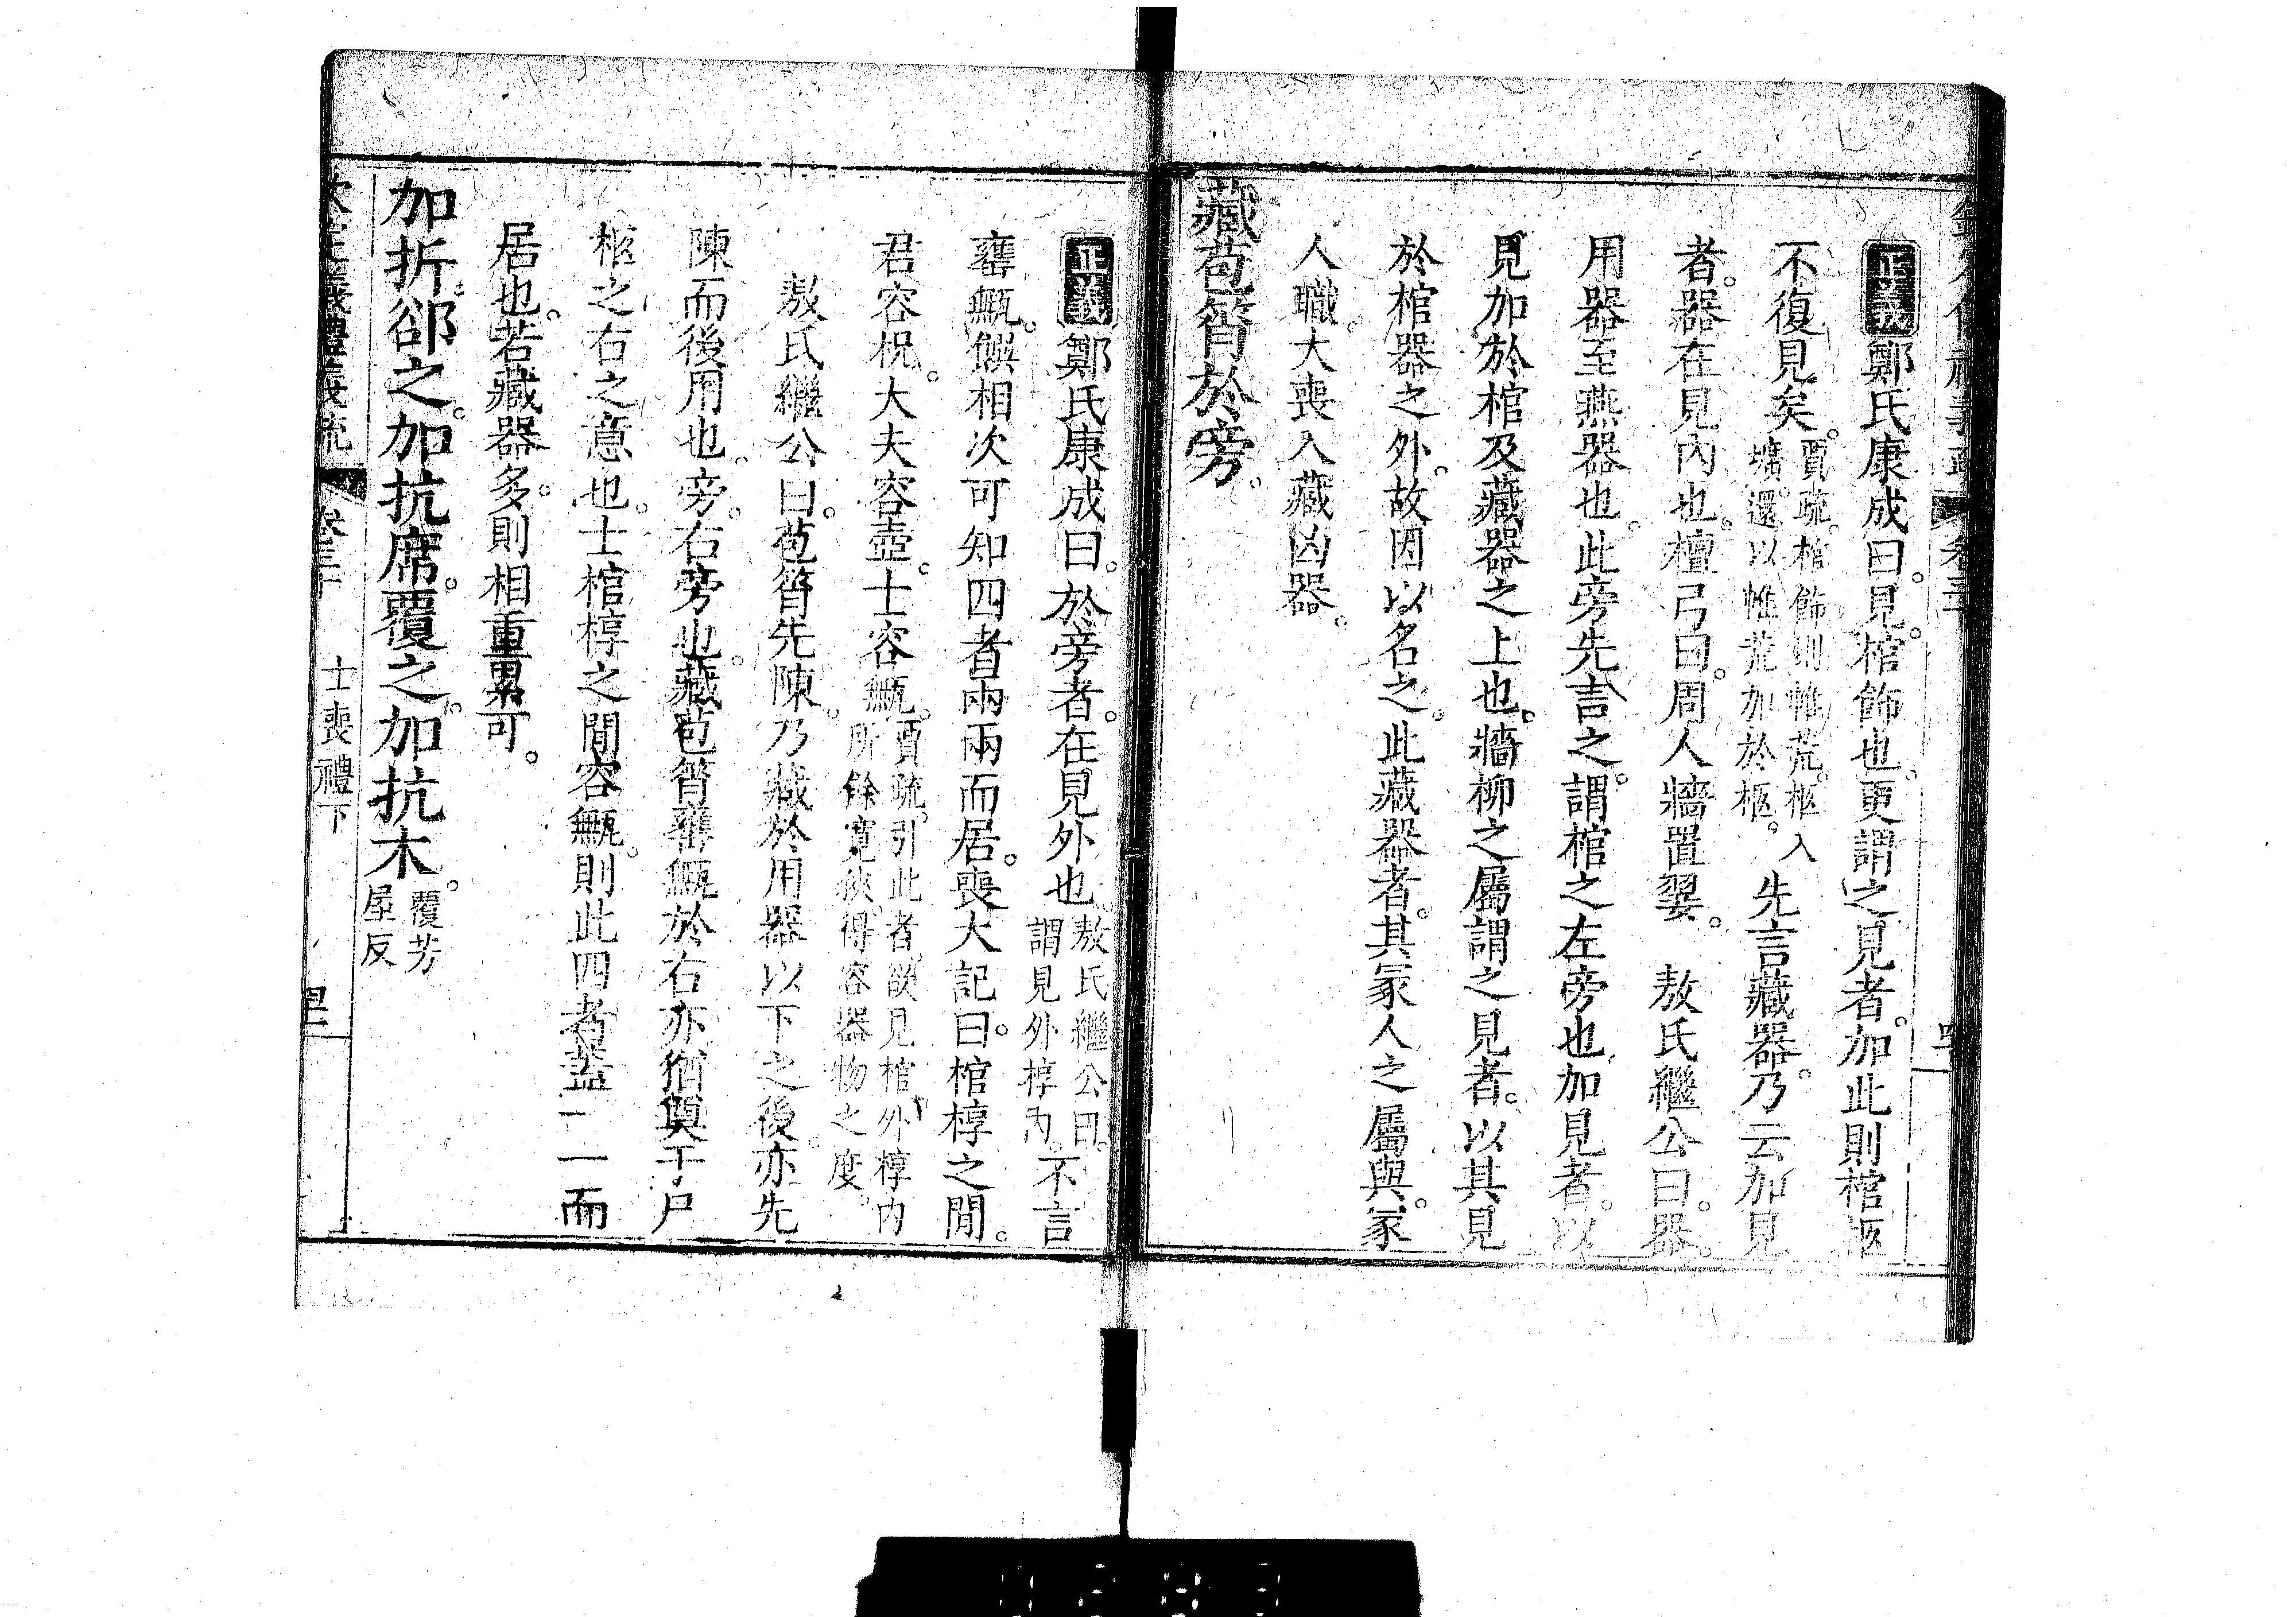 欽定儀禮義疏 卷三十
正義鄭氏康成曰。見。棺飾也。更謂之見者。加此則棺柩
不復見矣。賈疏。棺飾則帷荒。柩入壙。還以帷荒加於柩。先言藏器。乃云加見
者。器在見內也。檀弓曰。周人牆置翣。 敖氏繼公曰。器。
用器至燕器也。此旁先言之。謂棺之左旁也。加見者。以
見加於棺及藏器之上也。牆柳之屬謂之見者。以其見
於棺器之外。故因以名之。此藏器者。其冢人之屬與。冢
人職。大喪入藏凶器。
藏苞筲於旁。
正義鄭氏康成曰。於旁者。在見外也敖氏繼公曰。謂見外椁內。不言
罋甒。饌相次可知四者兩兩而居。喪大記曰。棺椁之閒。
君容柷。大夫容壺。士容甒。賈疏。引此者。欲見棺外椁內所餘寬狹。得容器物之度。
敖氏繼公曰。苞筲先陳。乃藏於用器以下之後。亦先
陳而後用也。旁。右旁也。藏苞筲罋甒於右亦猶奠于尸
柩之右之意也。士棺椁之閒容甒。則此四者蓋一一而
居也。若藏器多。則相重累可。
加折卻之。加抗席。覆之。加抗木。覆芳屋反
欽定儀禮義疏 卷三十 士喪禮下